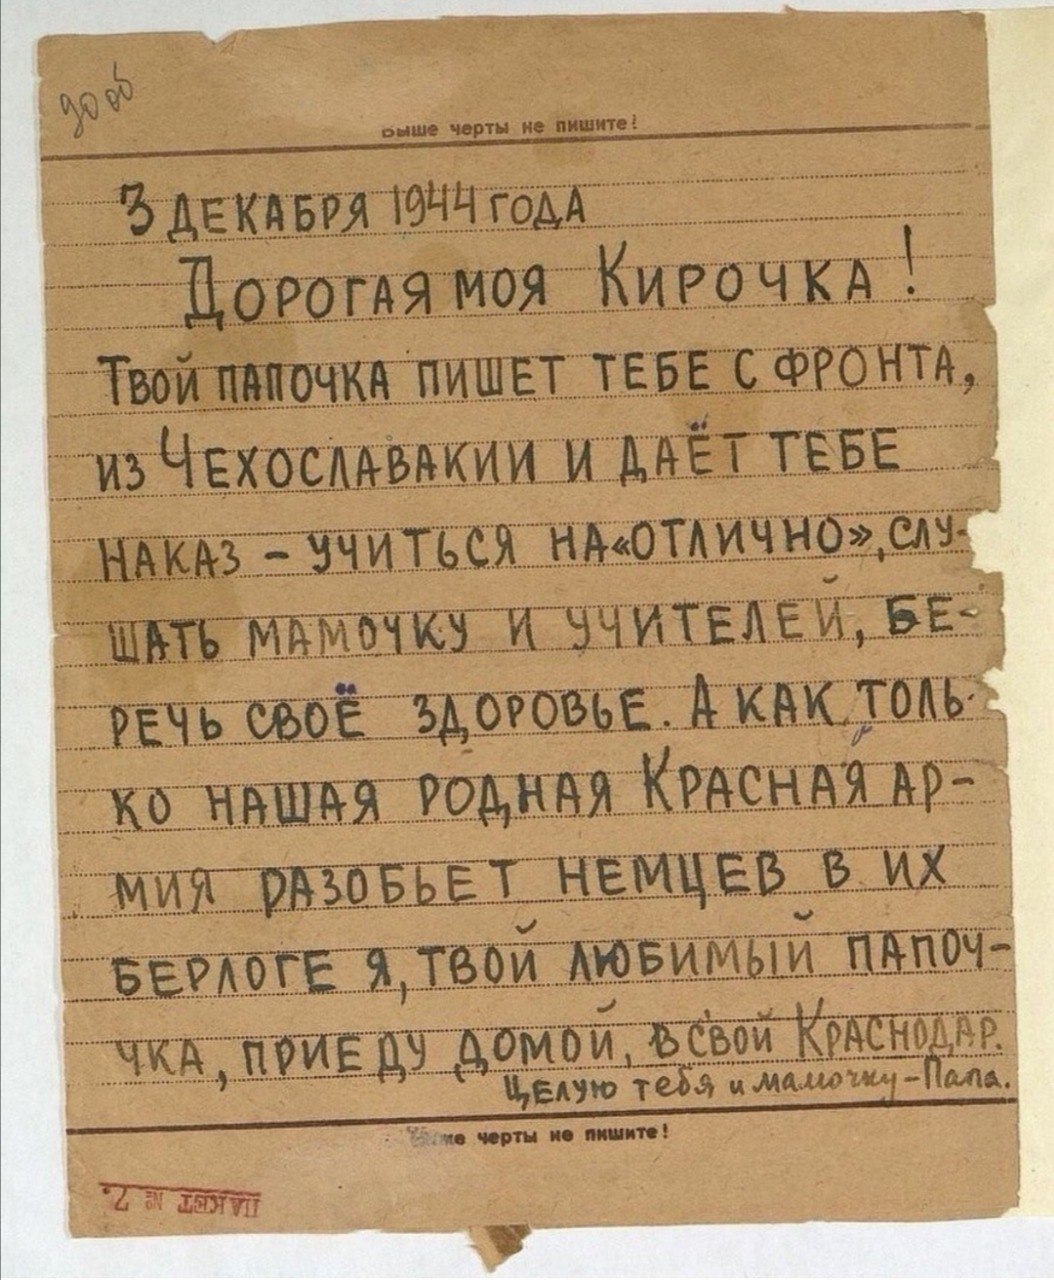 Выше черты не пишите!
3 ДЕКАБРЯ 1944 ГОДА
ДОРОГАЯ МОЯ КИРОЧКА!
ТВОЙ ПАПОЧКА ПИШЕТ ТЕБЕ С ФРОНТА,
ИЗ ЧЕХОСЛАВАКИИ И ДАЁТ ТЕБЕ
НАКАЗ – УЧИТЬСЯ НА «ОТЛИЧНО», СЛУ-
ШАТЬ МАМОЧКУ И УЧИТЕЛЕЙ, БЕ-
РЕЧЬ СВОЁ ЗДОРОВЬЕ. А КАК ТОЛЬ-
КО НАШАЯ РОДНАЯ КРАСНАЯ АР-
МИЯ РАЗОБЬЕТ НЕМЦЕВ В ИХ
БЕРЛОГЕ Я, ТВОЙ ЛЮБИМЫЙ ПАПОЧ-
ЧКА, ПРИЕДУ ДОМОЙ, В СВОЙ КРАСНОДАР.
ЦЕЛУЮ тебя и мамочку – Папа.
Ниже черты не пишите!
ПАКЕТ № 7.